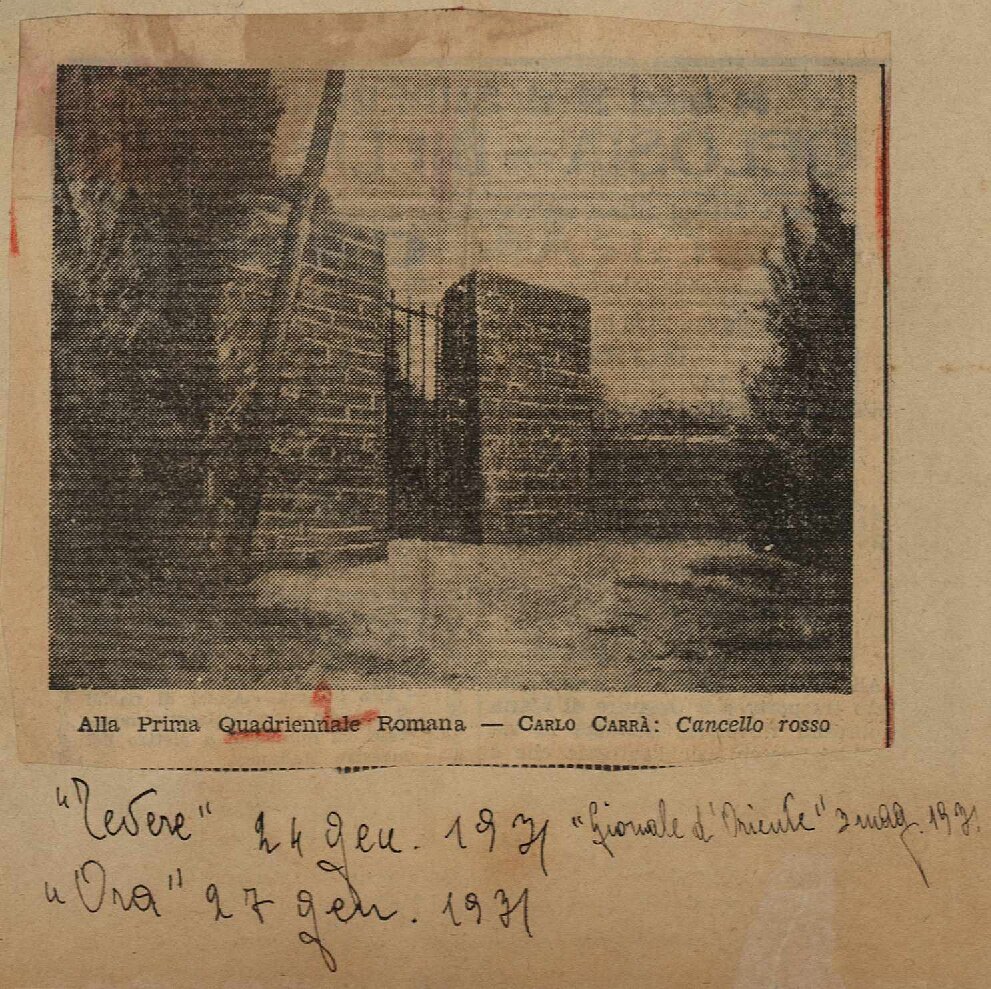 Alla Prima Quadriennale Romana — CARLO CARRÀ: Cancello rosso
"Tevere" 24 gen. 1931 "Giornale d'Oriente" 3 mag. 1931
"Ora" 27 gen. 1931